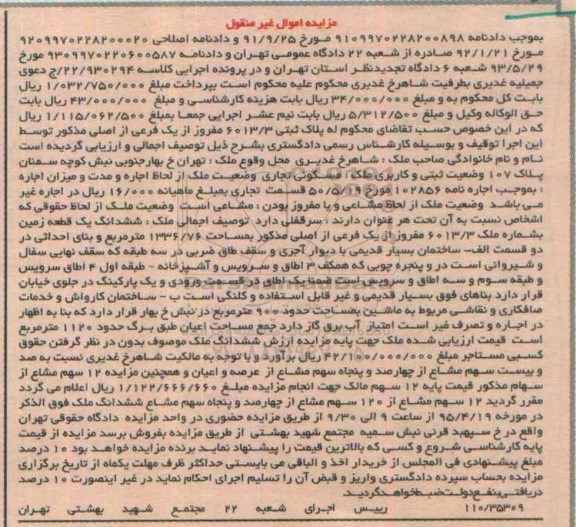 مزایده اموال غیر منقول
بموجب دادنامه ۹۱۰۹۹۷۰۲۲۸۲۰۰۸۹۸ مورخ ۹۱/۹/۲۵ و دادنامه اصلاحی ۹۲۰۹۹۷۰۲۲۸۲۰۰۰۲۰
مورخ ۹۲/۱/۲۱ صادره از شعبه ۲۲ دادگاه عمومی تهران و دادنامه ۹۳۰۹۹۷۰۲۲۰۶۰۰۵۸۷ مورخ
۹۳/۵/۲۹ شعبه ۶ دادگاه تجدیدنظر استان تهران و در پرونده اجرایی کلاسه ۲۲/۹۳۰۲۹۴/ج دعوی
جمیلیه غدیری بطرفیت شاهرخ غدیری محکوم علیه محکوم است بپرداخت مبلغ ۱/۰۳۲/۷۵۰/۰۰۰ ریال
بابت کل محکوم به و مبلغ ۳۴/۰۰۰/۰۰۰ ریال بابت هزینه کارشناسی و مبلغ ۴۳/۰۰۰/۰۰۰ ریال بابت
حق الوکاله وکیل و مبلغ ۵/۳۱۲/۵۰۰ ریال بابت نیم عشر اجرایی جمعا بمبلغ ۱/۱۱۵/۰۶۲/۵۰۰ ریال
که در این خصوص حسب تقاضای محکوم له پلاک ثبتی ۶۰۱۳/۳ مفروز از یک فرعی از اصلی مذکور توسط
این اجرا توقیف و بوسیله کارشناس رسمی دادگستری بشرح ذیل توصیف اجمالی و ارزیابی گردیده است
نام و نام خانوادگی صاحب ملک : شاهرخ غدیری محل وقوع ملک : تهران خ بهارجنوبی نبش کوچه سمنان
پلاک ۱۰۷ وضعیت ثبتی و کاربری ملک : مسکونی تجاری وضعیت ملک از لحاظ اجاره و مدت و میزان اجاره
: بموجب اجاره نامه ۱۰۲۸۵۶ مورخ ۵۰/۵/۱۹ قسمت تجاری بمبلغ ماهیانه ۱۶/۰۰۰ ریال در اجاره غیر
می باشد وضعیت ملک از لحاظ مشاعی و یا مفروز بودن : مشاعی است وضعیت ملک از لحاظ حقوقی که
اشخاص نسبت به آن تحت هر عنوان دارند : سرقفلی دارد توصیف اجمالی ملک : ششدانگ یک قطعه زمین
بشماره ملک ۶۰۱۳/۳ مفروز از یک فرعی از اصلی مذکور بمساحت ۱۳۳۶/۷۶ مترمربع و بنای احداثی در
دو قسمت الف- ساختمان بسیار قدیمی با دیوار آجری و سقف طاق ضربی در سه طبقه که سقف نهایی سفال
و شیروانی است در و پنجره چوبی که همکف ۳ اطاق و سرویس و آشپزخانه - طبقه اول ۴ اطاق سرویس
و طبقه سوم و سه اطاق و سرویس است ضمنا یک اطاق در قسمت ورودی و یک پارکینگ در جلوی خیابان
قرار دارد بناهای فوق بسیار قدیمی و غیر قابل استفاده و کلنگی است ب - ساختمان کارواش و خدمات
صافکاری و نقاشی مربوط به ماشین بمساحت حدود ۹۰۰ مترمربع در نبش خ بهار قرار دارد که بنا به اظهار
در اجاره و تصرف غیر است امتیاز آب برق گاز دارد جمع مساحت اعیان طبق برگ حدود ۱۱۲۰ مترمربع
است قیمت ارزیابی شده ملک جهت پایه مزایده ارزش ششدانگ ملک موصوف بدون در نظر گرفتن حقوق
کسبی مستاجر مبلغ ۴۲/۱۰۰/۰۰۰/۰۰۰ ریال برآورد و با توجه به مالکیت شاهرخ غدیری نسبت به صد
و بیست سهم مشاع از چهارصد و پنجاه سهم مشاع از عرصه و اعیان و همچنین مزایده ۱۲ سهم مشاع از
سهام مذکور قیمت پایه ۱۲ سهم مالک جهت انجام مزایده مبلغ ۱/۱۲۲/۶۶۶/۶۶۰ ریال اعلام می گردد
مقرر گردید ۱۲ سهم مشاع از ۱۲۰ سهم مشاع از چهارصد و پنجاه سهم مشاع ششدانگ ملک فوق الذکر
در مورخه ۹۵/۴/۱۹ از ساعت ۹ الی ۹/۳۰ از طریق مزایده حضوری در واحد مزایده دادگاه حقوقی تهران
واقع در خ سپهبد قرنی نبش سمیه مجتمع شهید بهشتی از طریق مزایده بفروش برسد مزایده از قیمت
پایه کارشناسی شروع و کسی که بالاترین قیمت را پیشنهاد نماید برنده مزایده خواهد بود ۱۰ درصد
مبلغ پیشنهادی فی المجلس از خریدار اخذ و الباقی می بایستی حداکثر ظرف مهلت یکماه از تاریخ برگزاری
مزایده بحساب سپرده دادگستری واریز و قبض آن را تسلیم اجرای احکام نماید در غیر اینصورت ۱۰ درصد
دریافتی بنفع دولت ضبط خواهد گردید.
۱۱۰/۳۵۳۰۹ رییس اجرای شعبه ۲۲ مجتمع شهید بهشتی تهران